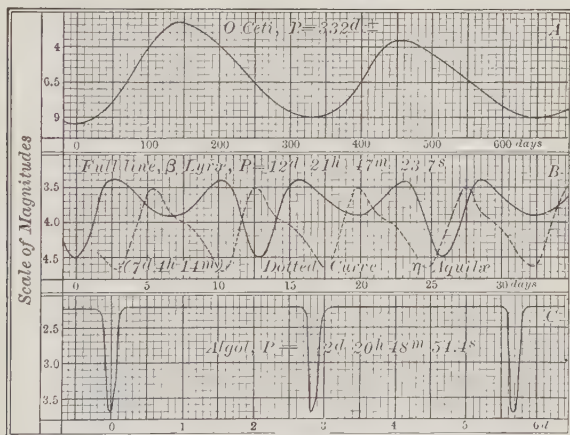 Scale of Magnitudes
O Ceti, P=332d ±
A
4
6.5
9
0 100 200 300 400 500 600 days
Full line, β Lyræ, P=12d 21h 47m 23.7s
B
3.5
4.0
4.5
(7d 4h 14m) Dotted Curve η Aquilæ
0 5 10 15 20 25 30 days
C
2.5
3.0
3.5
Algol, P = 2d 20h 48m 54.4s
0 1 2 3 4 5 6d